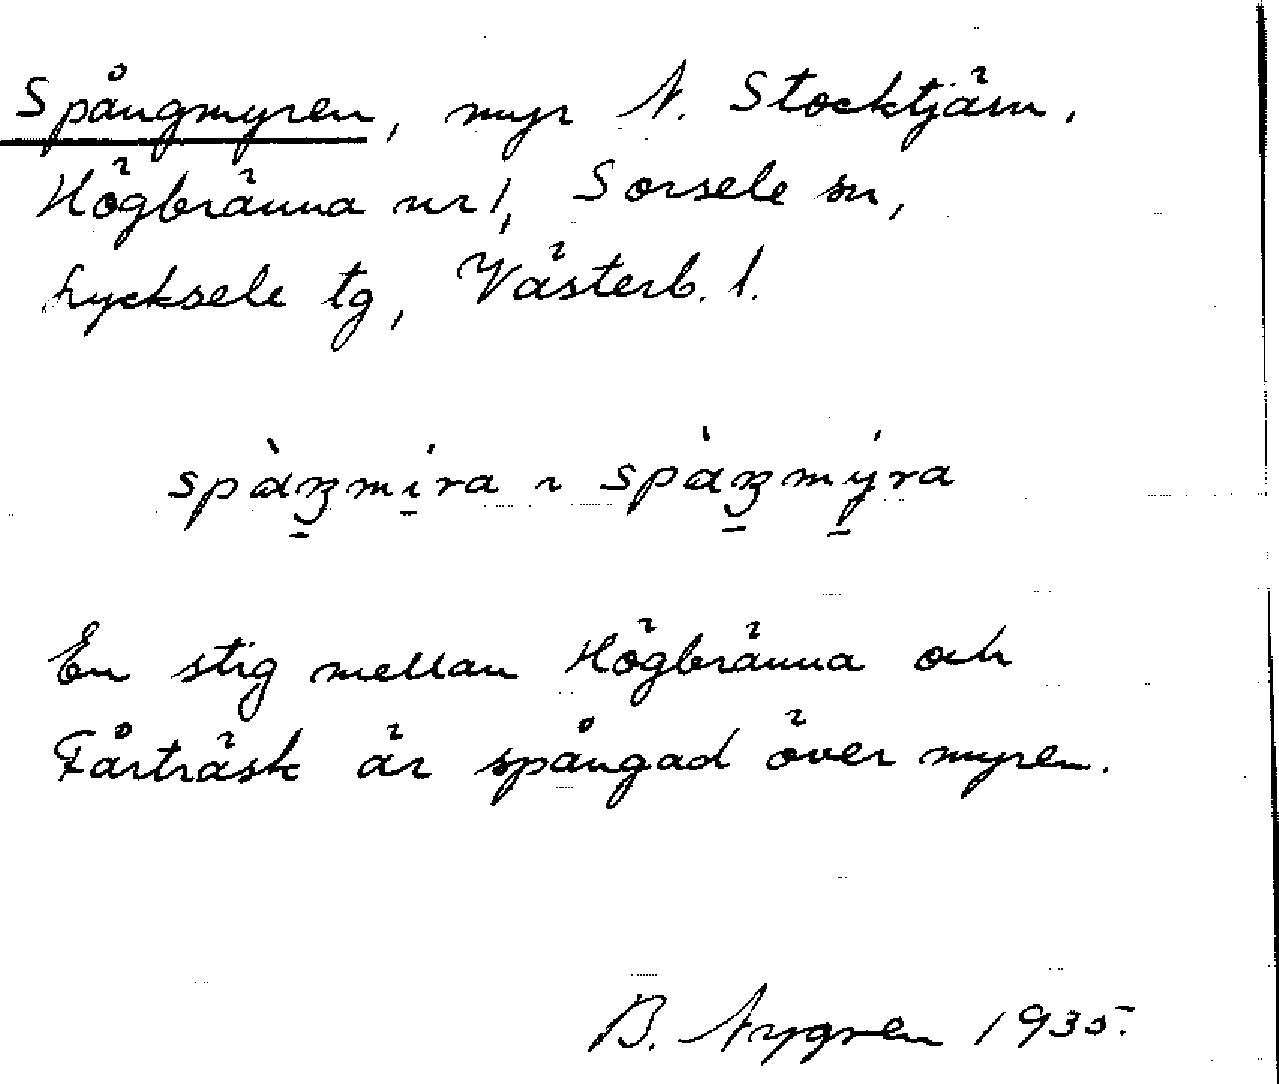 Spångmyren, myr N. Stocktjärn,
Högbränna nr 1, Sorsele sn,
Lycksele tg, Västerb. l.
En stig mellan Högbränna och
Fårträsk är spångad över myren.
B. Nygren 1935.